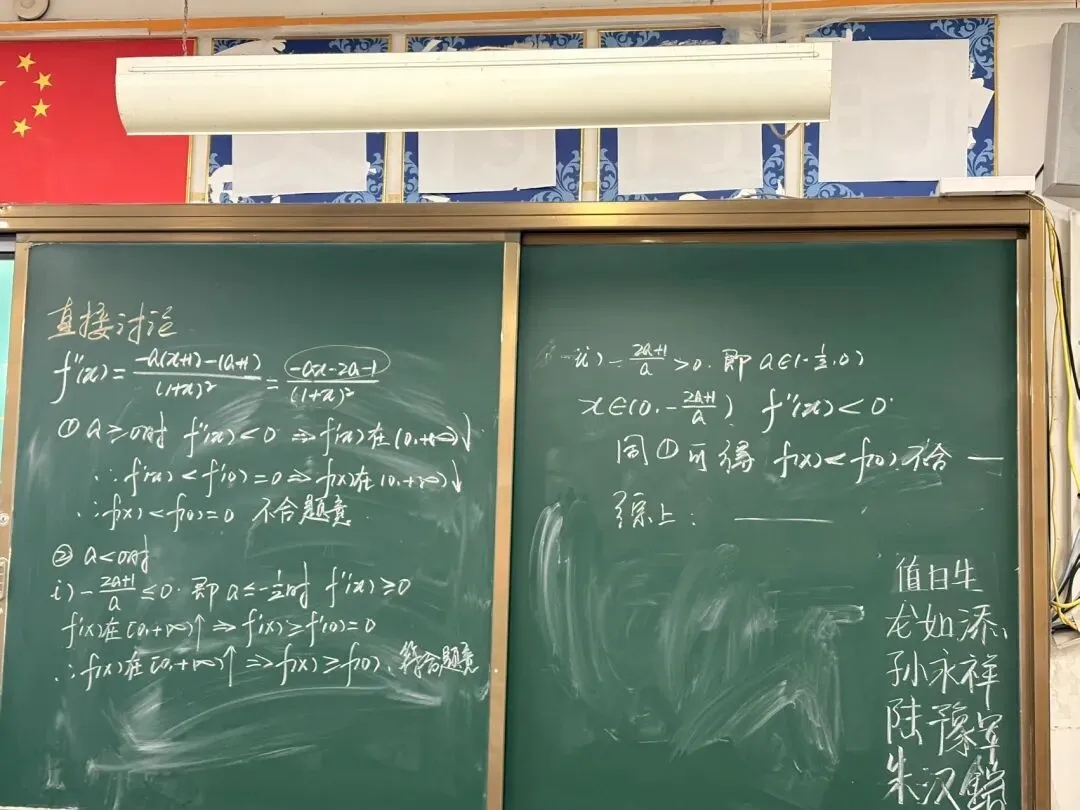 直接讨论
f''(x) = \frac{-a(x+1)-(a+1)}{(1+x)^2} = \frac{-ax-2a-1}{(1+x)^2}
① a≥0时 f''(x)<0 ⇒ f'(x)在(0,+∞)↓
∴f'(x)<f'(0)=0 ⇒ f(x)在(0,+∞)↓
∴f(x)<f(0)=0 不合题意
② a<0时
i) -\frac{2a+1}{a}≤0. 即 a≤-\frac{1}{2}时 f''(x)≥0
f'(x)在[0,+∞)↑ ⇒ f'(x)≥f'(0)=0
∴f(x)在[0,+∞)↑ ⇒ f(x)≥f(0). 符合题意
ii) -\frac{2a+1}{a}>0. 即 a∈(-\frac{1}{2},0)
x∈(0,-\frac{2a+1}{a}) f''(x)<0
同①可得 f(x)<f(0) 不合 —
综上: ———
值日生
龙如添
孙永祥
陆豫军
朱汉